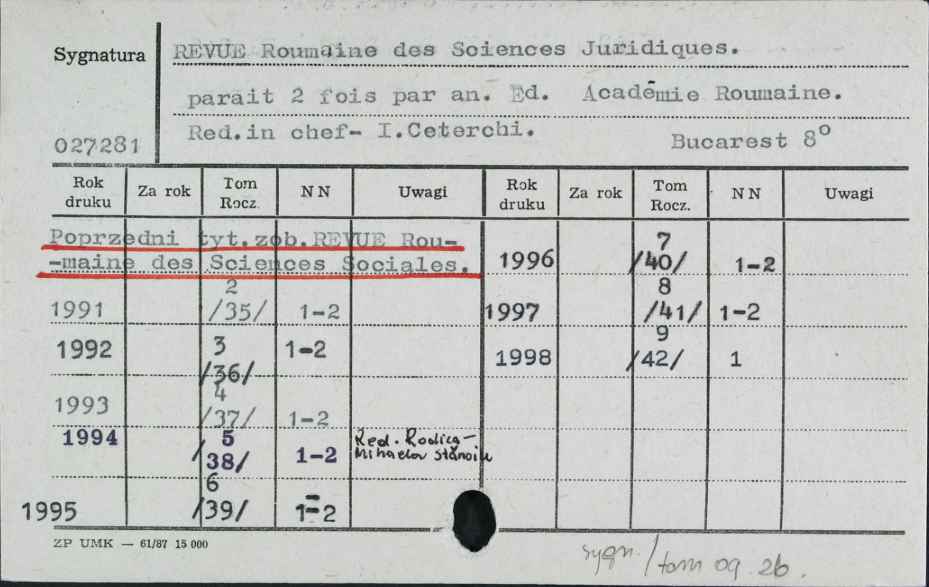 Sygnatura REVUE Roumaine des Sciences Juridiques.
parait 2 fois par an. Ed. Académie Roumaine.
027281 Red.in chef- I.Ceterchi. Bucarest 8°
Rok druku Za rok Tom Rocz. NN Uwagi Rok druku Za rok Tom Rocz. NN Uwagi
Poprzedni tyt.zob.REVUE Rou-
-maine des Sciences Sociales.
1991 2 /35/ 1-2
1992 3 /36/ 1-2
1993 4 /37/ 1-2
1994 5 /38/ 1-2 Red. Rodica-
Mihaela Stănoiu
1995 6 /39/ 1-2
1996 7 /40/ 1-2
1997 8 /41/ 1-2
1998 9 /42/ 1
ZP UMK — 61/87 15 000
sygn./tom 09 26.